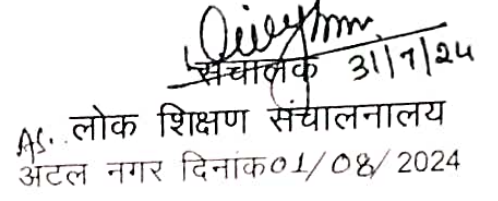 संचालक 31/7/24
As. लोक शिक्षण संचालनालय
अटल नगर दिनांक 01/08/2024